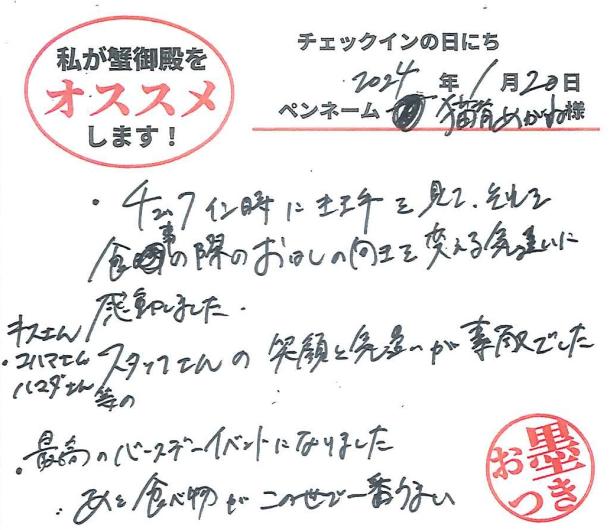 私が蟹御殿を
オススメ
します！
チェックインの日にち
2024年1月20日
ペンネーム 猫背めがね様
・チェックイン時に左手を見て、それを
食事の際のおはしの向きを変える気遣いに
感動しました.
オスさん
・コハマさん
ハマダさん
等の
スタッフさんの笑顔と気遣いが素敵でした
・最高のバースデーイベントになりました
・あと食べ物がこの世で一番うまい
お墨つき